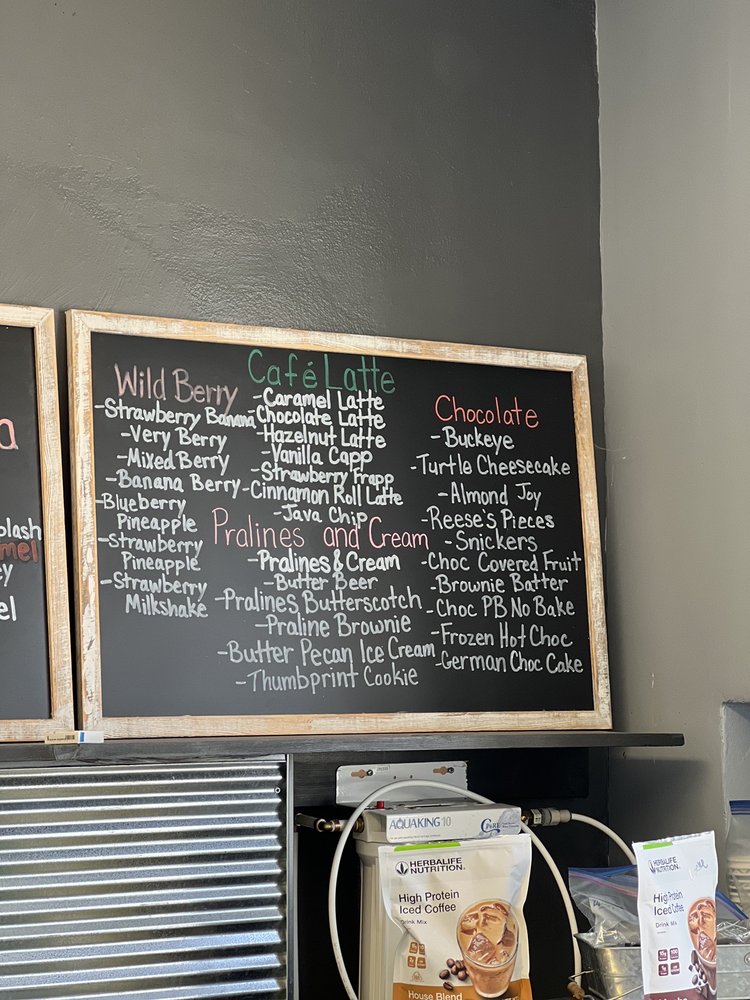 a
plash
mel
ey
el
Wild Berry
-Strawberry Banana
-Very Berry
-Mixed Berry
-Banana Berry
-Blueberry
Pineapple
-Strawberry
Pineapple
-Strawberry
Milkshake
Café Latte
-Caramel Latte
-Chocolate Latte
-Hazelnut Latte
-Vanilla Capp
-Strawberry Frapp
-Cinnamon Roll Latte
-Java Chip
Pralines and Cream
-Pralines & Cream
-Butter Beer
-Pralines Butterscotch
-Praline Brownie
-Butter Pecan Ice Cream
-Thumbprint Cookie
Chocolate
-Buckeye
-Turtle Cheesecake
-Almond Joy
-Reese's Pieces
-Snickers
-Choc Covered Fruit
-Brownie Batter
-Choc PB No Bake
-Frozen Hot Choc
-German Choc Cake
AQUAKING 10
HERBALIFE
NUTRITION
High Protein
Iced Coffee
Drink Mix
House Blend
HERBALIFE
NUTRITION
High Protein
Iced Coffee
Drink Mix